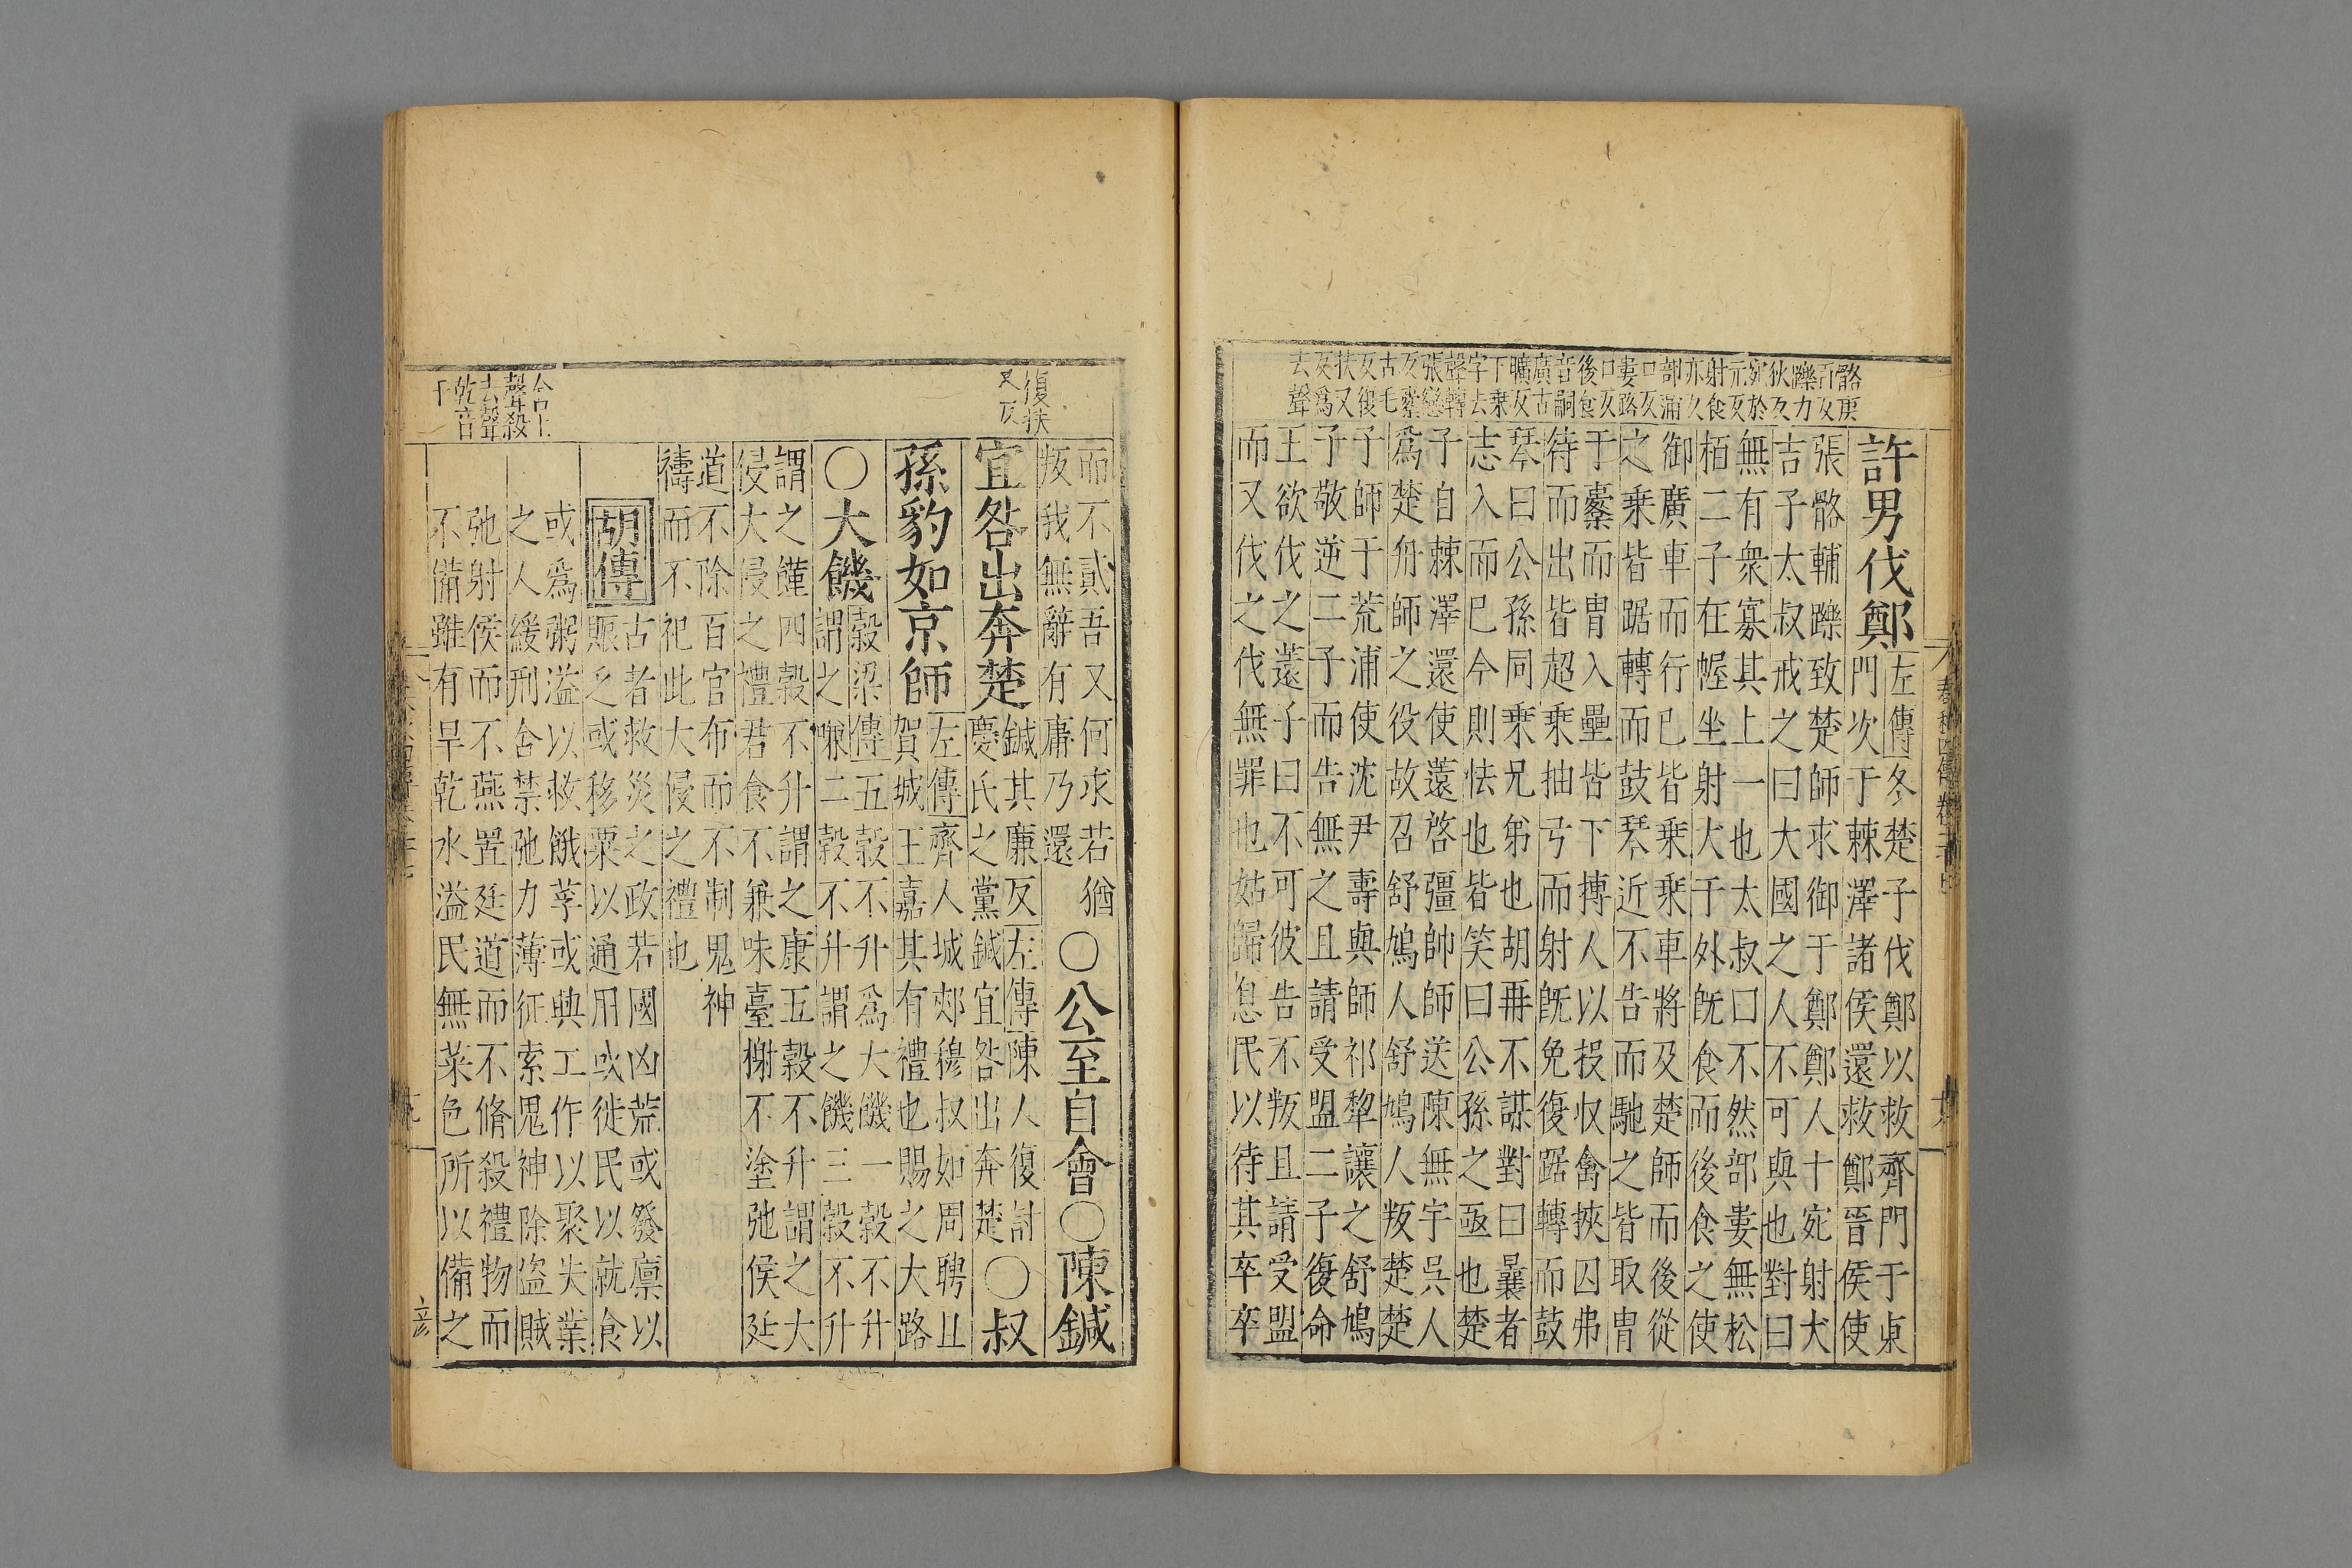 骼庚
百反
躒力
狄反
宛於
元反
射食
亦反
部滿
口反
婁路
口反
後食
音嗣
廣古
曠反
下乗
字去
聲轉
張戀
反櫜
古毛
反復
扶又
反爲
去聲
許男伐鄭
左傳冬楚子伐鄭以救齊門于東
門次于棘澤諸侯還救鄭晉侯使
張骼輔躒致楚師求御于鄭鄭人十宛射犬
吉子太叔戒之曰大國之人不可與也對曰
無有衆寡其上一也太叔曰不然部婁無松
栢二子在幄坐射犬于外旣食而後食之使
御廣車而行已皆乗乗車將及楚師而後從
之乗皆踞轉而鼓琴近不告而馳之皆取胄
于櫜而胄入壘皆下搏人以投收禽挾囚弗
待而出皆超乗抽弓而射旣免復踞轉而鼓
琴曰公孫同乗兄弟也胡再不謀對曰曩者
志入而已今則怯也皆笑曰公孫之亟也楚
子自棘澤還使薳啓彊帥師送陳無宇吳人
爲楚舟師之役故召舒鳩人舒鳩人叛楚楚
子師于荒浦使沈尹壽與師祁犂讓之舒鳩
子敬逆二子而告無之且請受盟二子復命
王欲伐之薳子曰不可彼告不叛且請受盟
而又伐之伐無罪也姑歸息民以待其卒卒
復扶
又反
而不貳吾又何求若猶
叛我無辭有庸乃還
○公至自會○陳鍼
宜咎出奔楚
鍼其廉反左傳陳人復討
慶氏之黨鍼宜咎出奔楚
○叔
孫豹如京師
左傳齊人城郟穆叔如周聘且
賀城王嘉其有禮也賜之大路
○大饑
穀梁傳五穀不升爲大饑一穀不升
謂之嗛二穀不升謂之饑三穀不升
謂之饉四穀不升謂之康五穀不升謂之大
侵大侵之禮君食不兼味臺榭不塗弛侯延
道不除百官布而不制鬼神
禱而不祀此大侵之禮也
胡傳
古者救災之政若國凶荒或發廩以
賑乏或移粟以通用或徙民以就食
或爲粥溢以救餓莩或興工作以聚失業
之人緩刑舍禁弛力薄征索鬼神除盜賊
弛射侯而不燕置廷道而不脩殺禮物而
不備雖有旱乾水溢民無菜色所以備之
舍上
聲殺
去聲
乾音
干